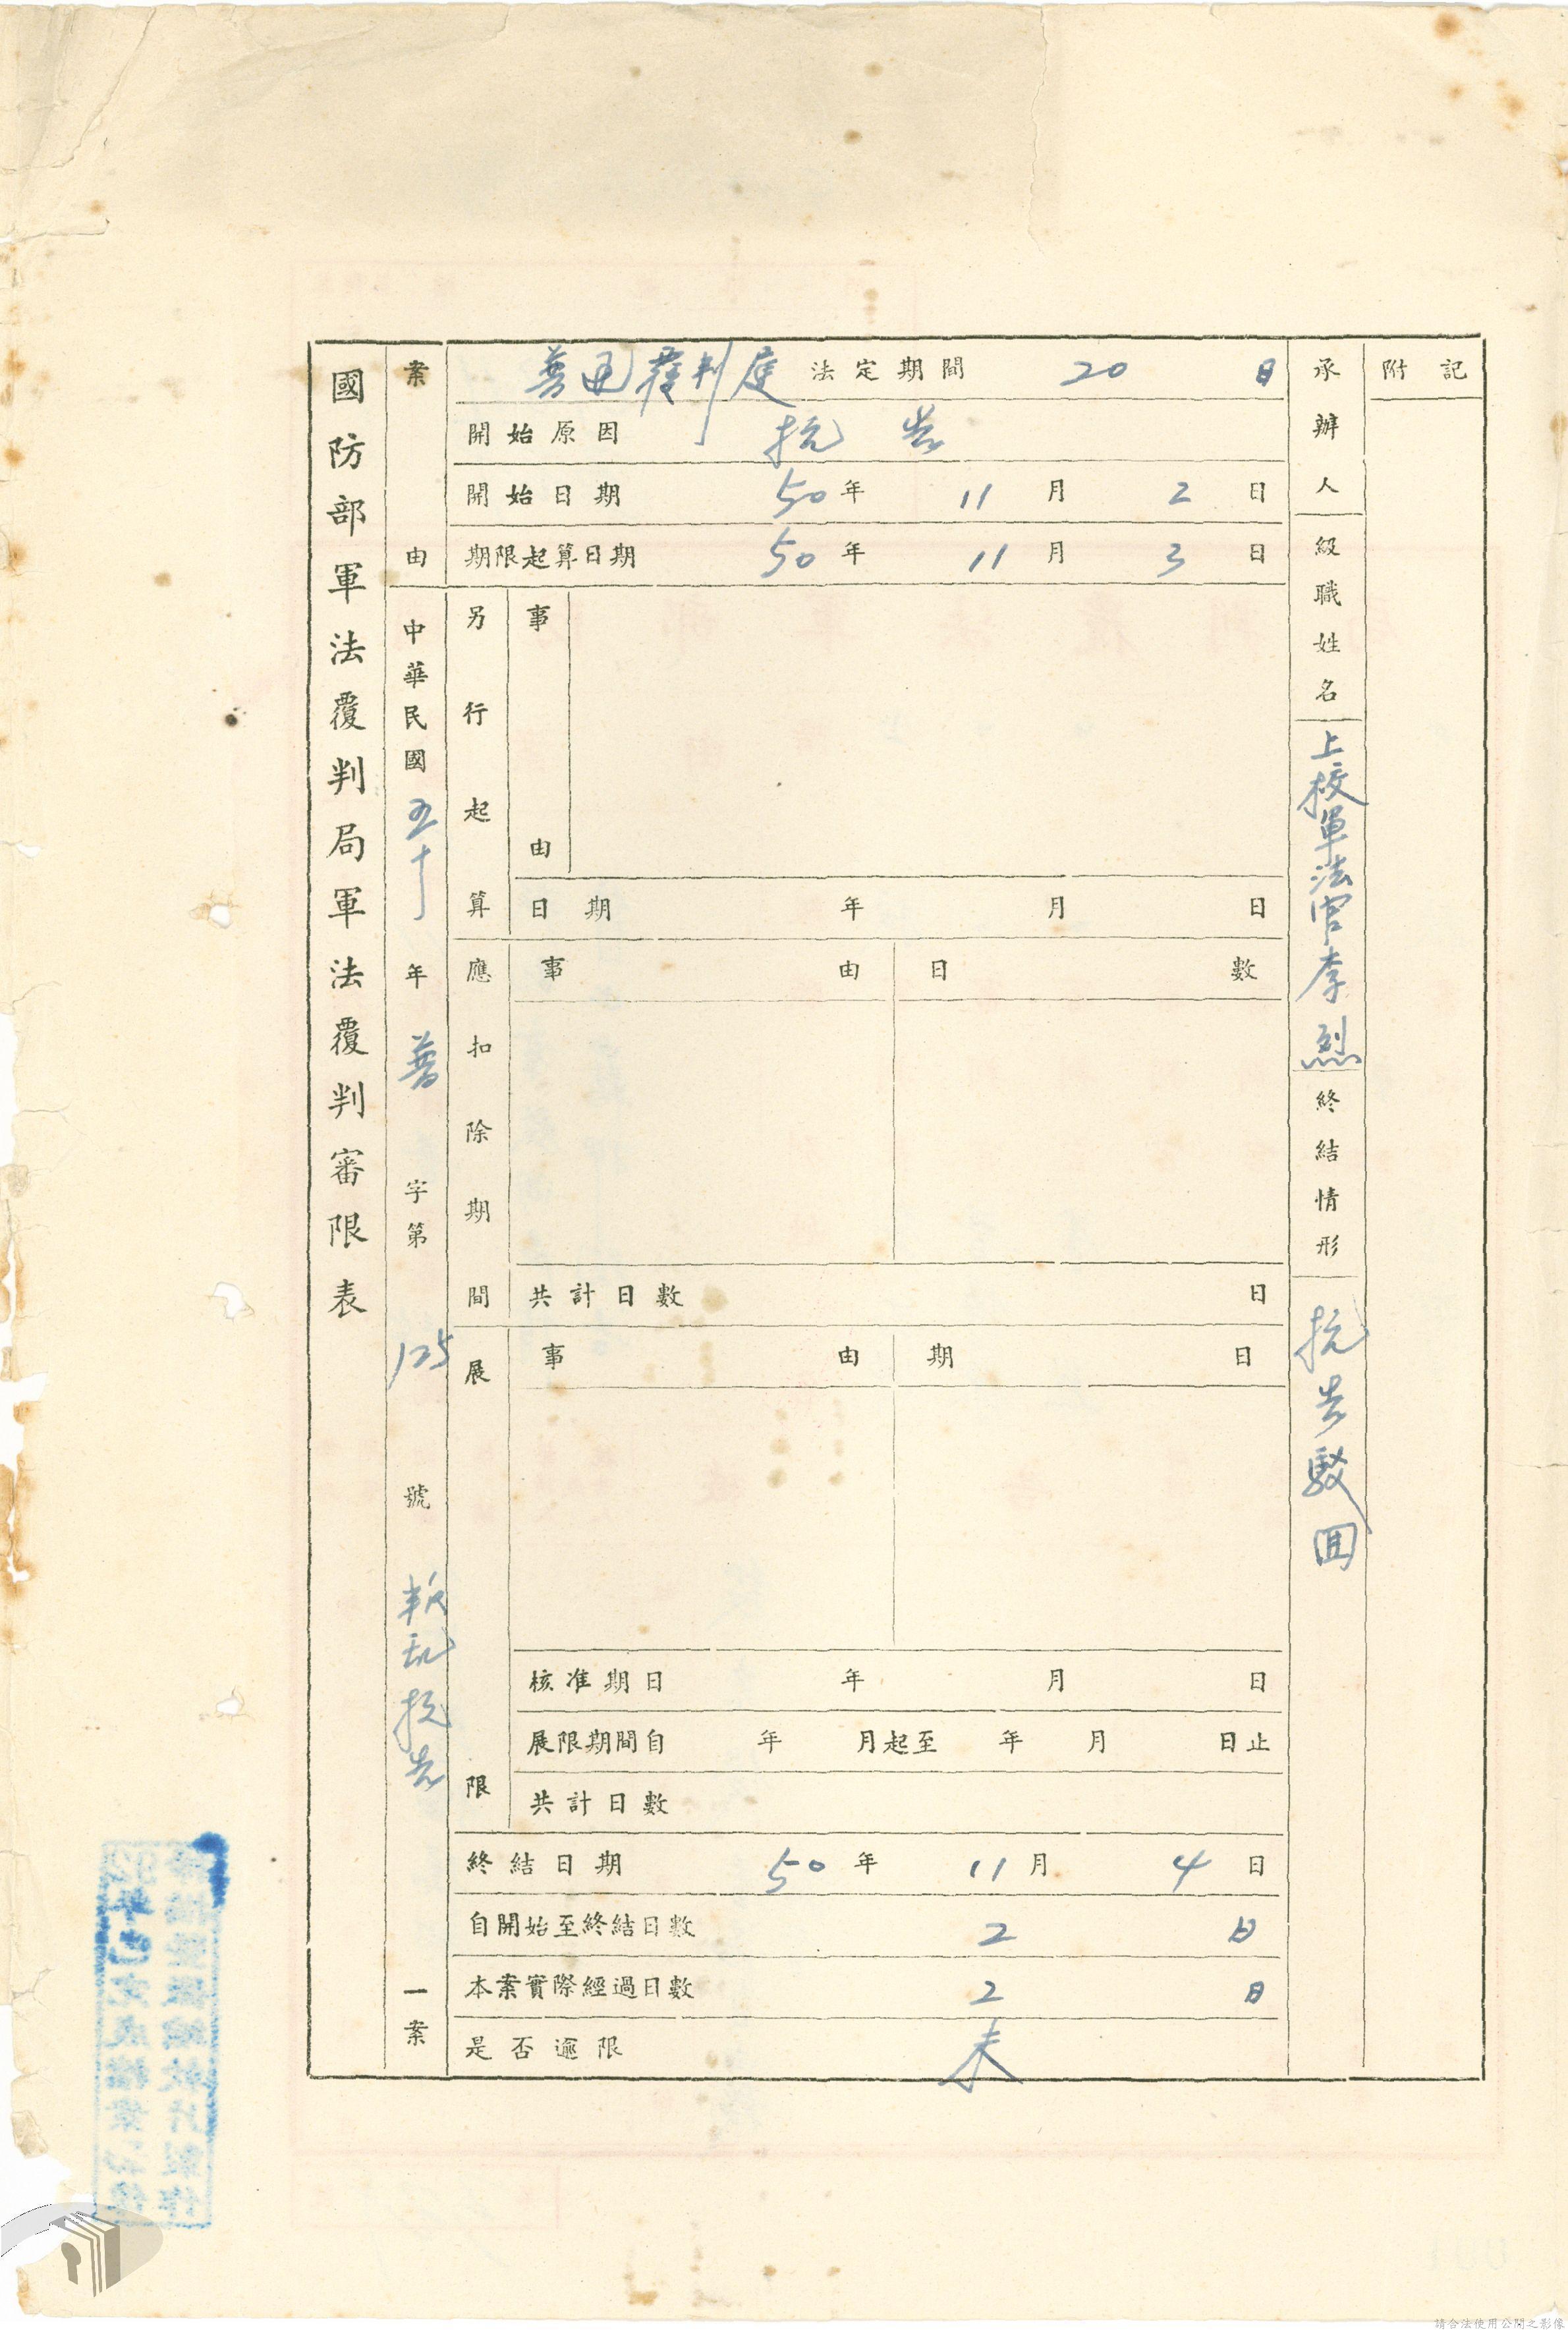 國防部軍法覆判局軍法覆判審限表
案由 中華民國五十年普字第125號 叛乱抗告 一案
普通覆判庭 法定期間 20 日
開始原因 抗告
開始日期 50年 11月 2日
期限起算日期 50年 11月 3日
另行起算 事由
日期 年 月 日
應扣除期間 事由 日數
共計日數 日
展限 事由 期日
核准期日 年 月 日
展限期間自 年 月起至 年 月 日止
共計日數
終結日期 50年 11月 4日
自開始至終結日數 2 日
本案實際經過日數 2 日
是否逾限 未
承辦人級職姓名 上校軍法官李烈 終結情形 抗告駁回
附記
請合法使用公開之影像